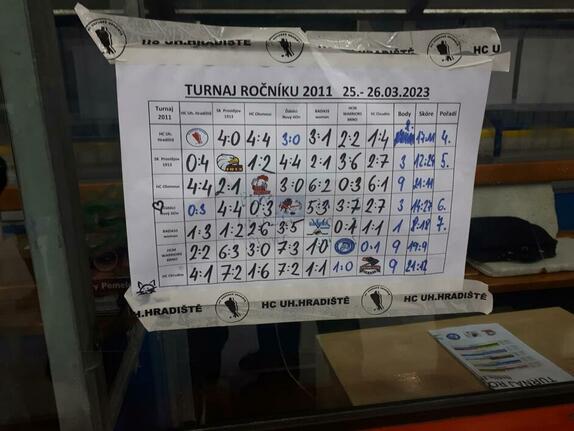 HC UH.HRADIŠTĚ HC UH.HRADIŠTĚ HC
TURNAJ ROČNÍKU 2011 25.- 26.03.2023
Turnaj 2011 HC Uh. Hradiště SK Prostějov 1913 HC Olomouc Ďáblíci Nový Jičín RADASS woman HCM WARRIORS BRNO HC Chrudim Body Skóre Pořadí
HC Uh. Hradiště 4:0 4:4 3:0 3:1 2:2 1:4 17:11 4.
SK Prostějov 1913 0:4 1:2 4:4 2:1 3:6 2:7 3 12:24 5.
HC Olomouc 4:4 2:1 3:0 6:2 0:3 6:1 9 21:11
Nový Jičín 0:3 4:4 0:3 5:3 3:7 2:7 3 14:27 6.
woman 1:3 1:2 2:6 3:5 0:1 1:1 1 8:18 7.
HCM WARRIORS BRNO 2:2 6:3 3:0 7:3 1:0 0:1 9 19:9
HC Chrudim 4:1 7:2 1:6 7:2 1:1 1:0 9 21:12
UH.HRADIŠTĚ HC UH.HRADIŠTĚ HC UH.HRADIŠTĚ